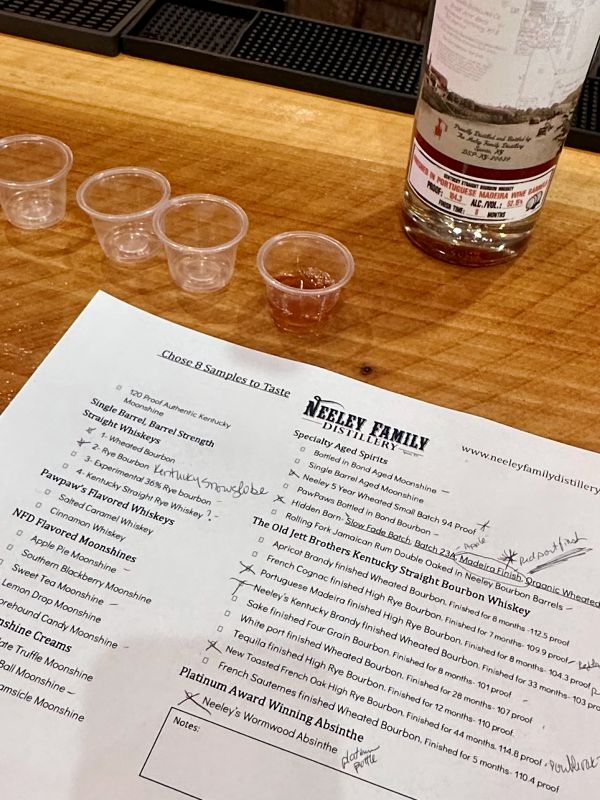 Proudly Distilled and Bottled by
The Neeley Family Distillery
Sparta, KY
KENTUCKY STRAIGHT BOURBON WHISKEY
FINISHED IN PORTUGUESE MADEIRA WINE BARRELS
PROOF: 104.3 ALC./VOL.: 52.15%
FINISH TIME: 8 MONTHS
Chose 8 Samples to Taste
120 Proof Authentic Kentucky
Moonshine
Single Barrel, Barrel Strength
Straight Whiskeys
1- Wheated Bourbon
2- Rye Bourbon Kentucky Snowglobe
3- Experimental 36% Rye bourbon
4- Kentucky Straight Rye Whiskey ?
Pawpaw's Flavored Whiskeys
Salted Caramel Whiskey
Cinnamon Whiskey
NFD Flavored Moonshines
Apple Pie Moonshine
Southern Blackberry Moonshine
Sweet Tea Moonshine
Lemon Drop Moonshine
orehound Candy Moonshine
nshine Creams
ate Truffle Moonshine
Ball Moonshine
amsicle Moonshine
NEELEY FAMILY
DISTILLERY
www.neeleyfamilydistillery
Specialty Aged Spirits
Bottled in Bond Aged Moonshine
Single Barrel Aged Moonshine
Neeley 5 Year Wheated Small Batch 94 Proof
PawPaws Bottled in Bond Bourbon
Hidden Barn- Slow Fade Batch, Batch 23A, Madeira Finish, Organic Wheated
Apple
Red port finish
Rolling Fork Jamaican Rum Double Oaked in Neeley Bourbon Barrels
The Old Jett Brothers Kentucky Straight Bourbon Whiskey
Apricot Brandy finished Wheated Bourbon. Finished for 8 months -112.5 proof
French Cognac finished High Rye Bourbon. Finished for 7 months- 109.9 proof
Portuguese Madeira finished High Rye Bourbon. Finished for 8 months- 104.3 proof
Neeley's Kentucky Brandy finished Wheated Bourbon. Finished for 33 months- 103
Sake finished Four Grain Bourbon. Finished for 8 months- 101 proof
White port finished Wheated Bourbon. Finished for 28 months- 107 proof
Tequila finished High Rye Bourbon. Finished for 12 months- 110 proof.
New Toasted French Oak High Rye Bourbon. Finished for 44 months. 114.8 proof
French Sauternes finished Wheated Bourbon. Finished for 5 months- 110.4 proof
Platinum Award Winning Absinthe
Neeley's Wormwood Absinthe platinum
bottle
Notes: